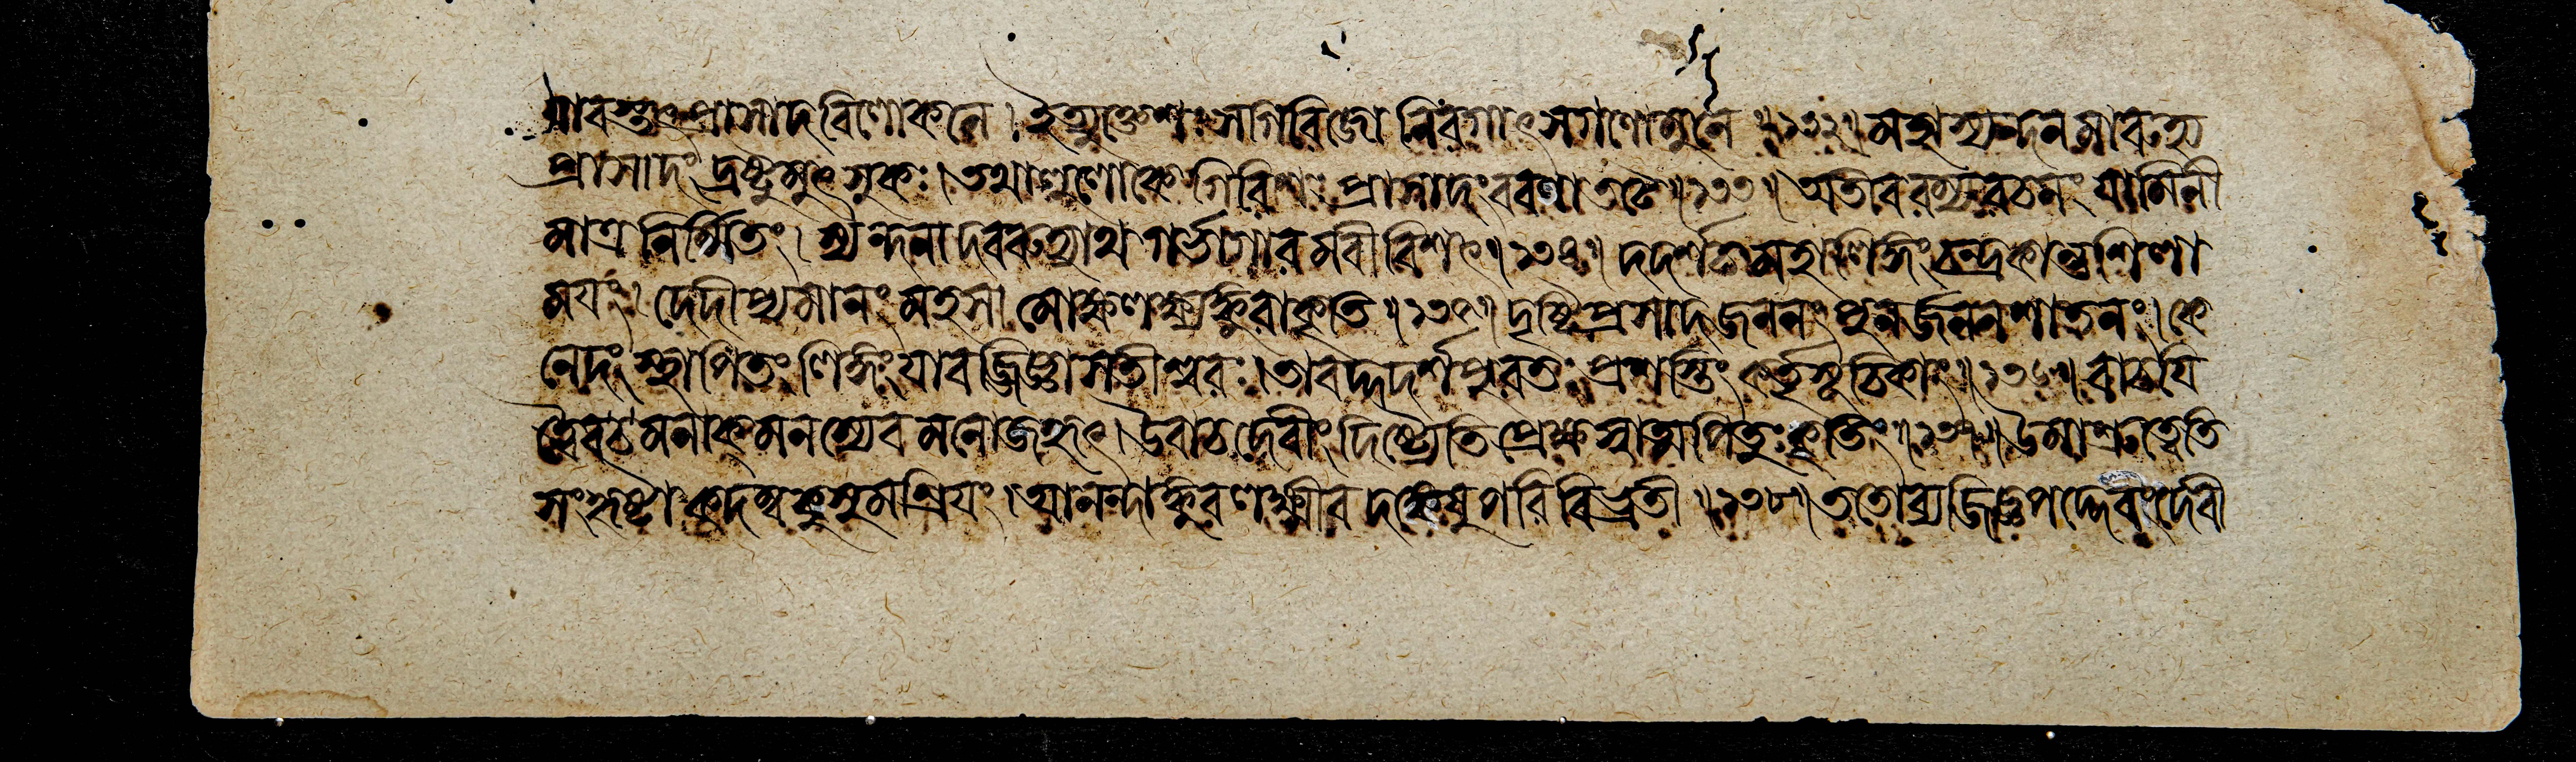 যাবস্তুৎপ্রাসাদবিলোকনে। ইত্যুক্তেশঃ সগিরিজো নিরগাৎ সগণোমুনে॥১৩২॥ মহাস্যন্দনমারুহ্য
প্রাসাদং দ্রষ্টুমুৎসুকঃ। তথালুলোকে গিরিশঃ প্রাসাদং বরণাতটে॥১৩৩॥ অতীবরম্যরচনং যামিনী
মাত্রনির্ম্মিতং। স্যন্দনাদবরুহ্যাথ গর্ভাগারমবীবিশৎ॥১৩৪॥ দদর্শচমহালিঙ্গং চন্দ্রকান্তশিলা
ময়ং। দেদীপ্যমানং মহসা মোক্ষলক্ষ্ম্যঙ্কুরাকৃতি॥১৩৫॥ দৃষ্টিপ্রসাদজননং পুনর্জননশাতনং। কে
নেদং স্থাপিতং লিঙ্গং যাবজ্জিজ্ঞাসতীশ্বরঃ। তাবদ্দদর্শপুরতঃ প্রশস্তিং কর্তৃসূচিকাং॥১৩৬॥ বাচয়ি
ত্বৈবচ মনাক্ মনস্যেব মনোজহৃৎ। উবাচ দেবীং দিষ্ট্যেতি প্রেক্ষস্বাত্মপিতুঃ কৃতিং॥১৩৭॥ উমাশ্রুত্বেতি
সংহৃষ্টা কদম্বকুসুমশ্রিয়ং। আনন্দাঙ্কুরলক্ষ্মীব দক্ষেষুপরিবিভ্রতী॥১৩৮॥ ততোব্যজিজ্ঞপদ্দেবং দেবী